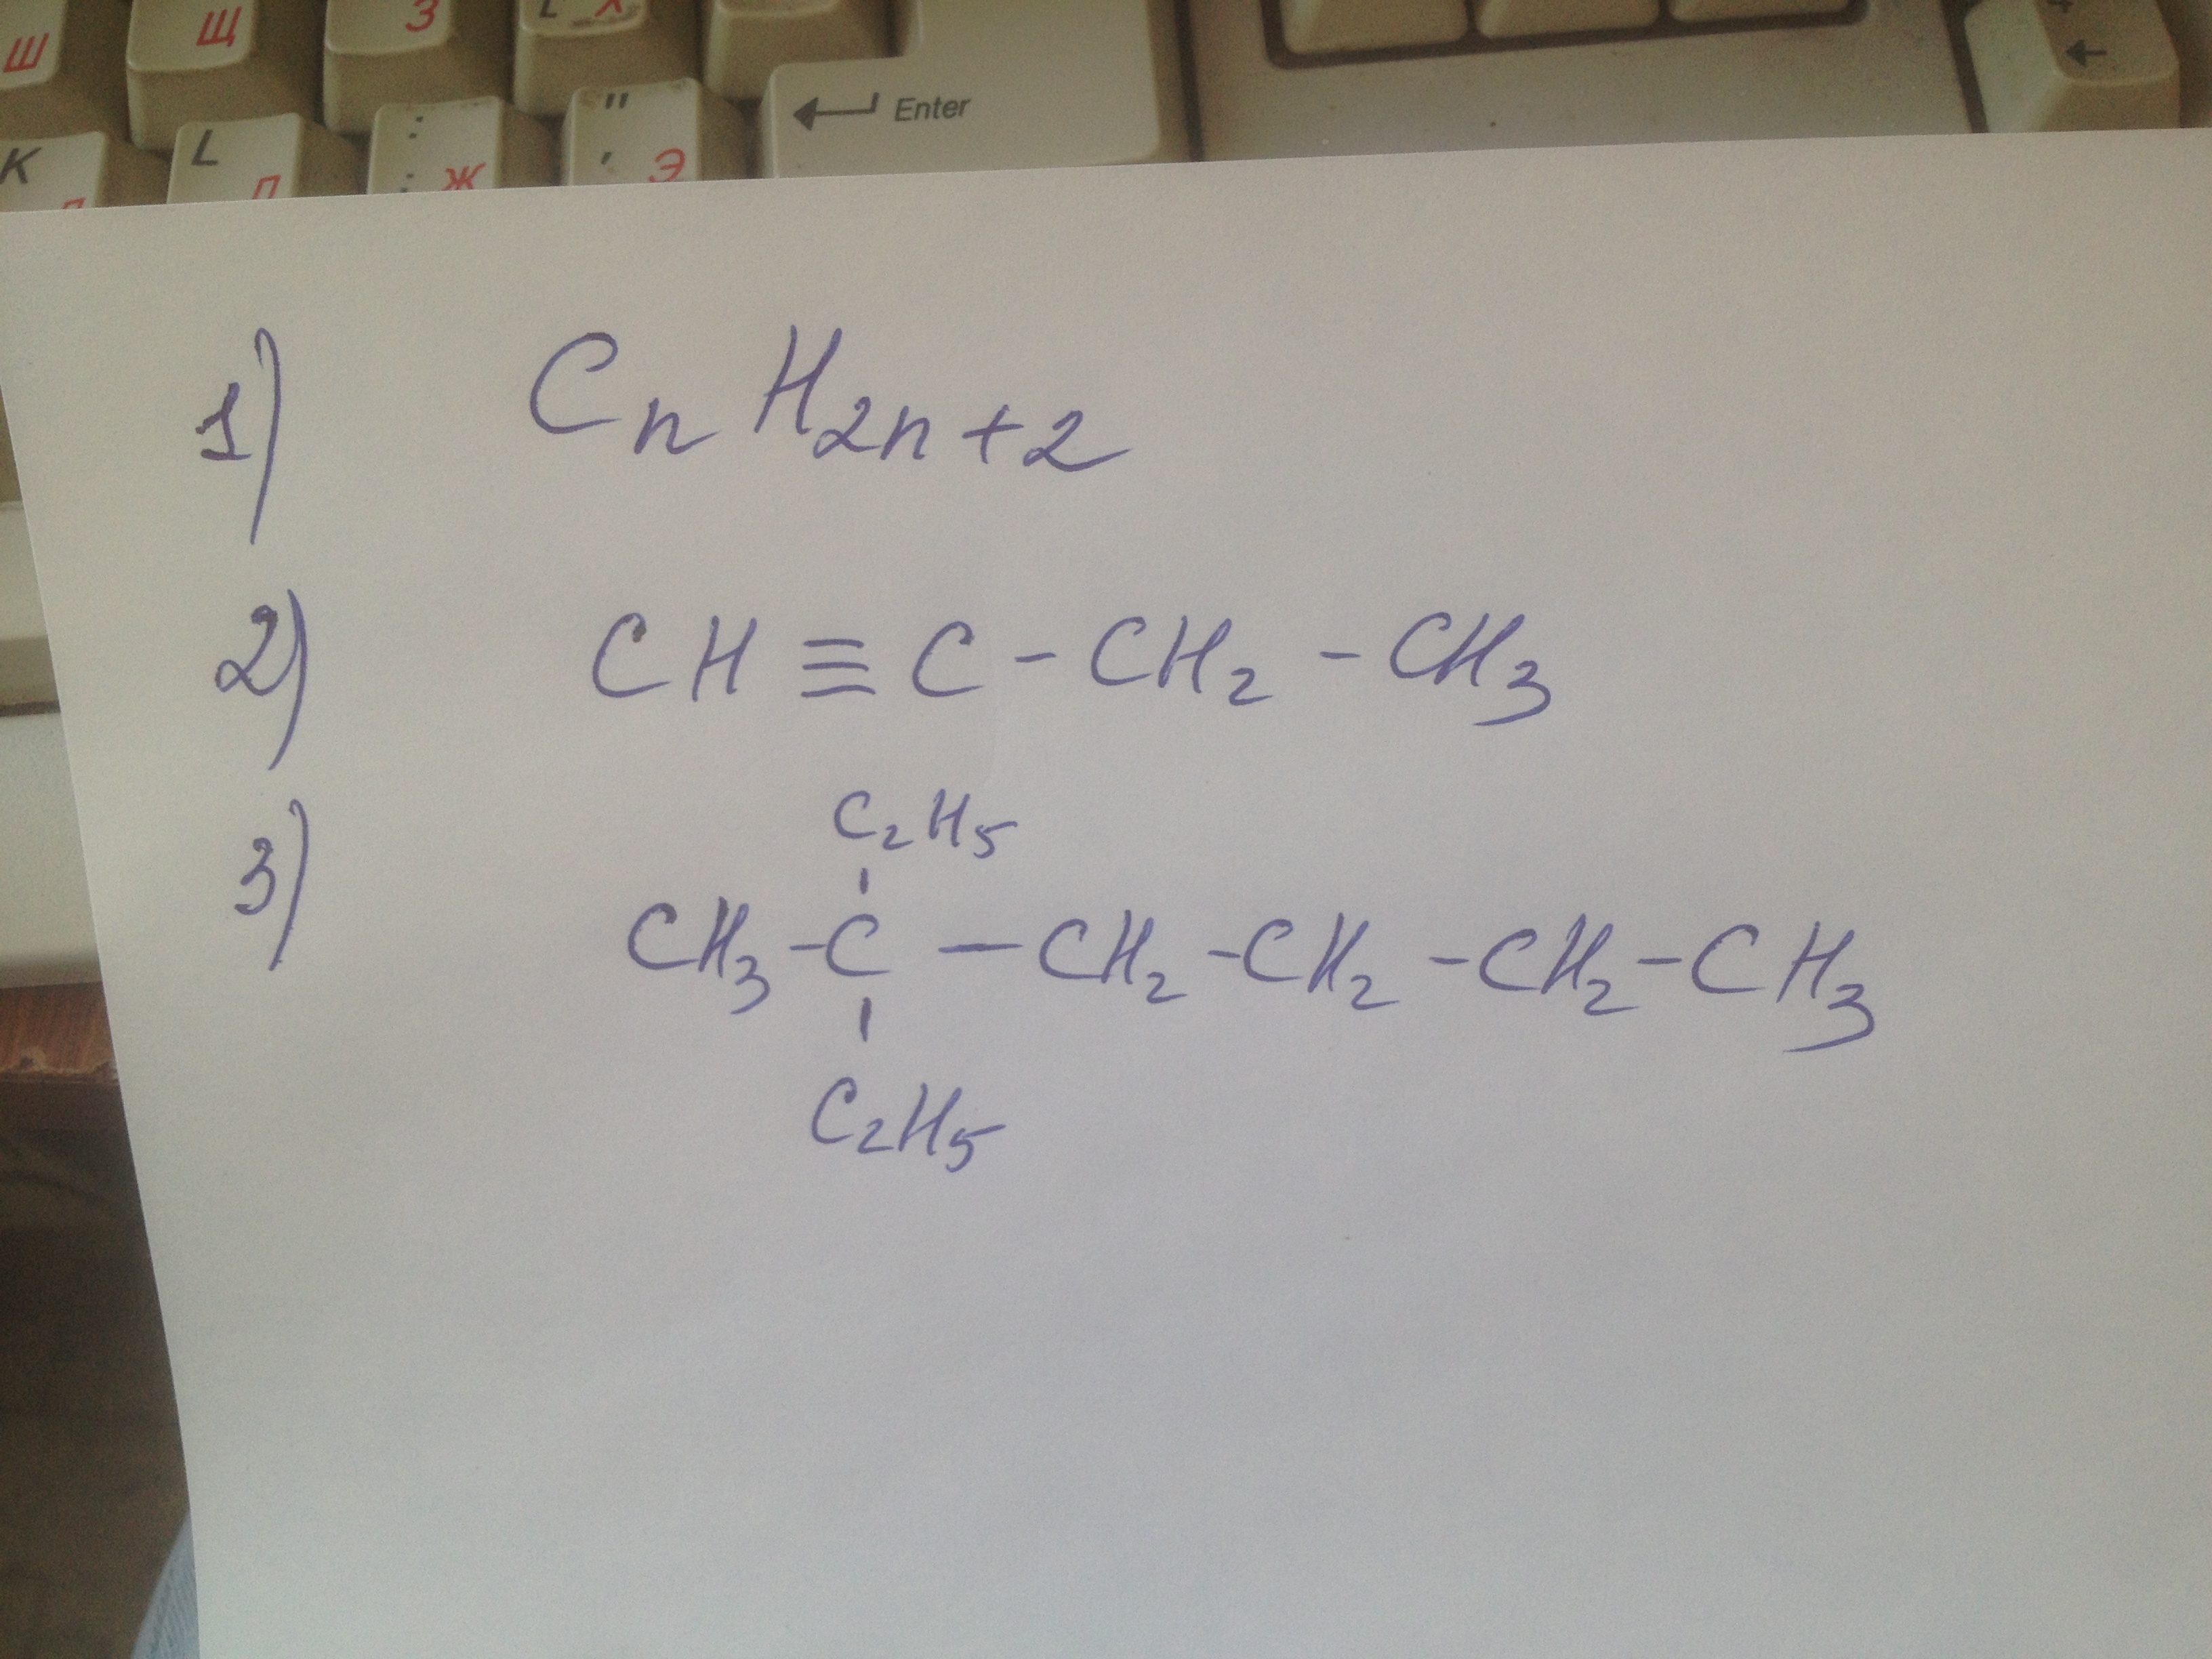 Ш Щ З Х
K L Д : ; Ж " ' Э Enter
1) CₙH₂ₙ₊₂
2) CH ≡ C - CH₂ - CH₃
3) C₂H₅
CH₃ - C — CH₂ - CH₂ - CH₂ - CH₃
C₂H₅